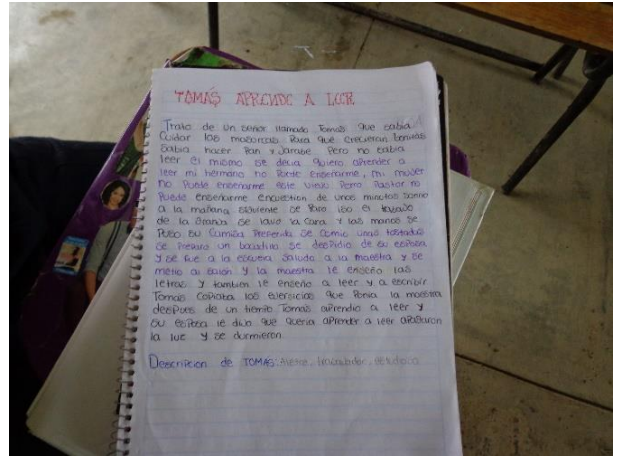 TOMÁS APRENDE A LEER
Trato de un señor llamado Tomás que sabia
Cuidar las mazorcas Para que crecieran bonitas
Sabia hacer Pan y Jarabe Pero no sabia
leer él mismo se decia quiero aprender a
leer mi hermano no Puede Enseñarme, mi mujer
no Puede enseñarme este viejo Perro Pastor no
Puede enseñarme encuestion de unos minutos sonrio
a la mañana siguiente se Paro iso el trabajo
de la Granja se lavo la cara y las manos se
Puso su Camisa Preferida se Comio unas tostadas
se Preparo un bocadillo se despidio de su esposa
y se fue a la escuela Saludo a la maestra y se
metio al salon y la maestra le enseño las
letras y tambien le enseño a leer y a escribir
Tomas Copiaba los ejercicios que Ponia la maestra
despues de un tiempo Tomas aprendio a leer y
su esposa le dijo que queria aprender a leer apagaron
la luz y se durmieron
Descripcion de TOMAS: trabajador